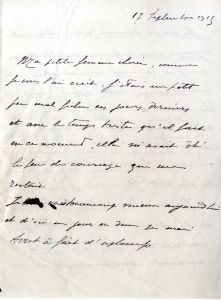 17 Septembre 1915
Ma petite femme chérie, comme
je vous l'ai écrit j'étais un petit
peu mal fichu ces jours derniers
et avec le temps triste qu'il fait
en ce moment, cela m'avait ôté
le peu de courage que me
restait
Je beaucoup mieux aujourd'hui
et d'ici un jour ou deux
tout à fait d'aplomb